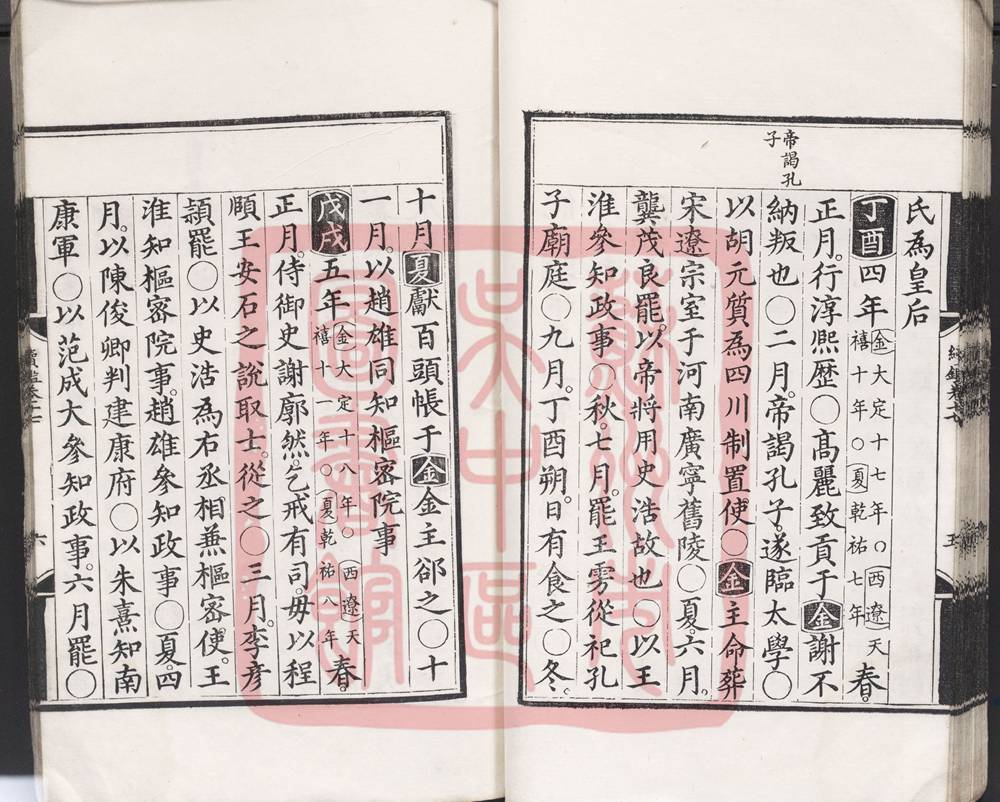 帝謁孔
子
氏為皇后
丁酉四年金大定十七年○西遼天
禧十年○夏乾祐七年春。
正月。行淳熈歴○髙麗致貢于金謝不
納叛也○二月。帝謁孔子。遂臨太學○
以胡元質為四川制置使○金主命葬
宋遼宗室于河南廣寧舊陵○夏。六月。
龔茂良罷。以帝將用史浩故也○以王
淮參知政事○秋。七月。罷王雱從祀孔
子廟庭○九月。丁酉朔。日有食之○冬。
十月夏獻百頭帳于金金主郤之○十
一月。以趙雄同知樞密院事
戊戌五年金大定十八年○西遼天
禧十一年○夏乾祐八年春。
正月。侍御史謝廓然。乞戒有司。毋以程
頤王安石之說取士。從之○三月。李彥
頴罷○以史浩為右丞相兼樞密使。王
淮知樞密院事。趙雄參知政事○夏。四
月。以陳俊卿判建康府○以朱熹知南
康軍○以范成大參知政事。六月罷○
五
六
蘇州市
吳中區
圖書館